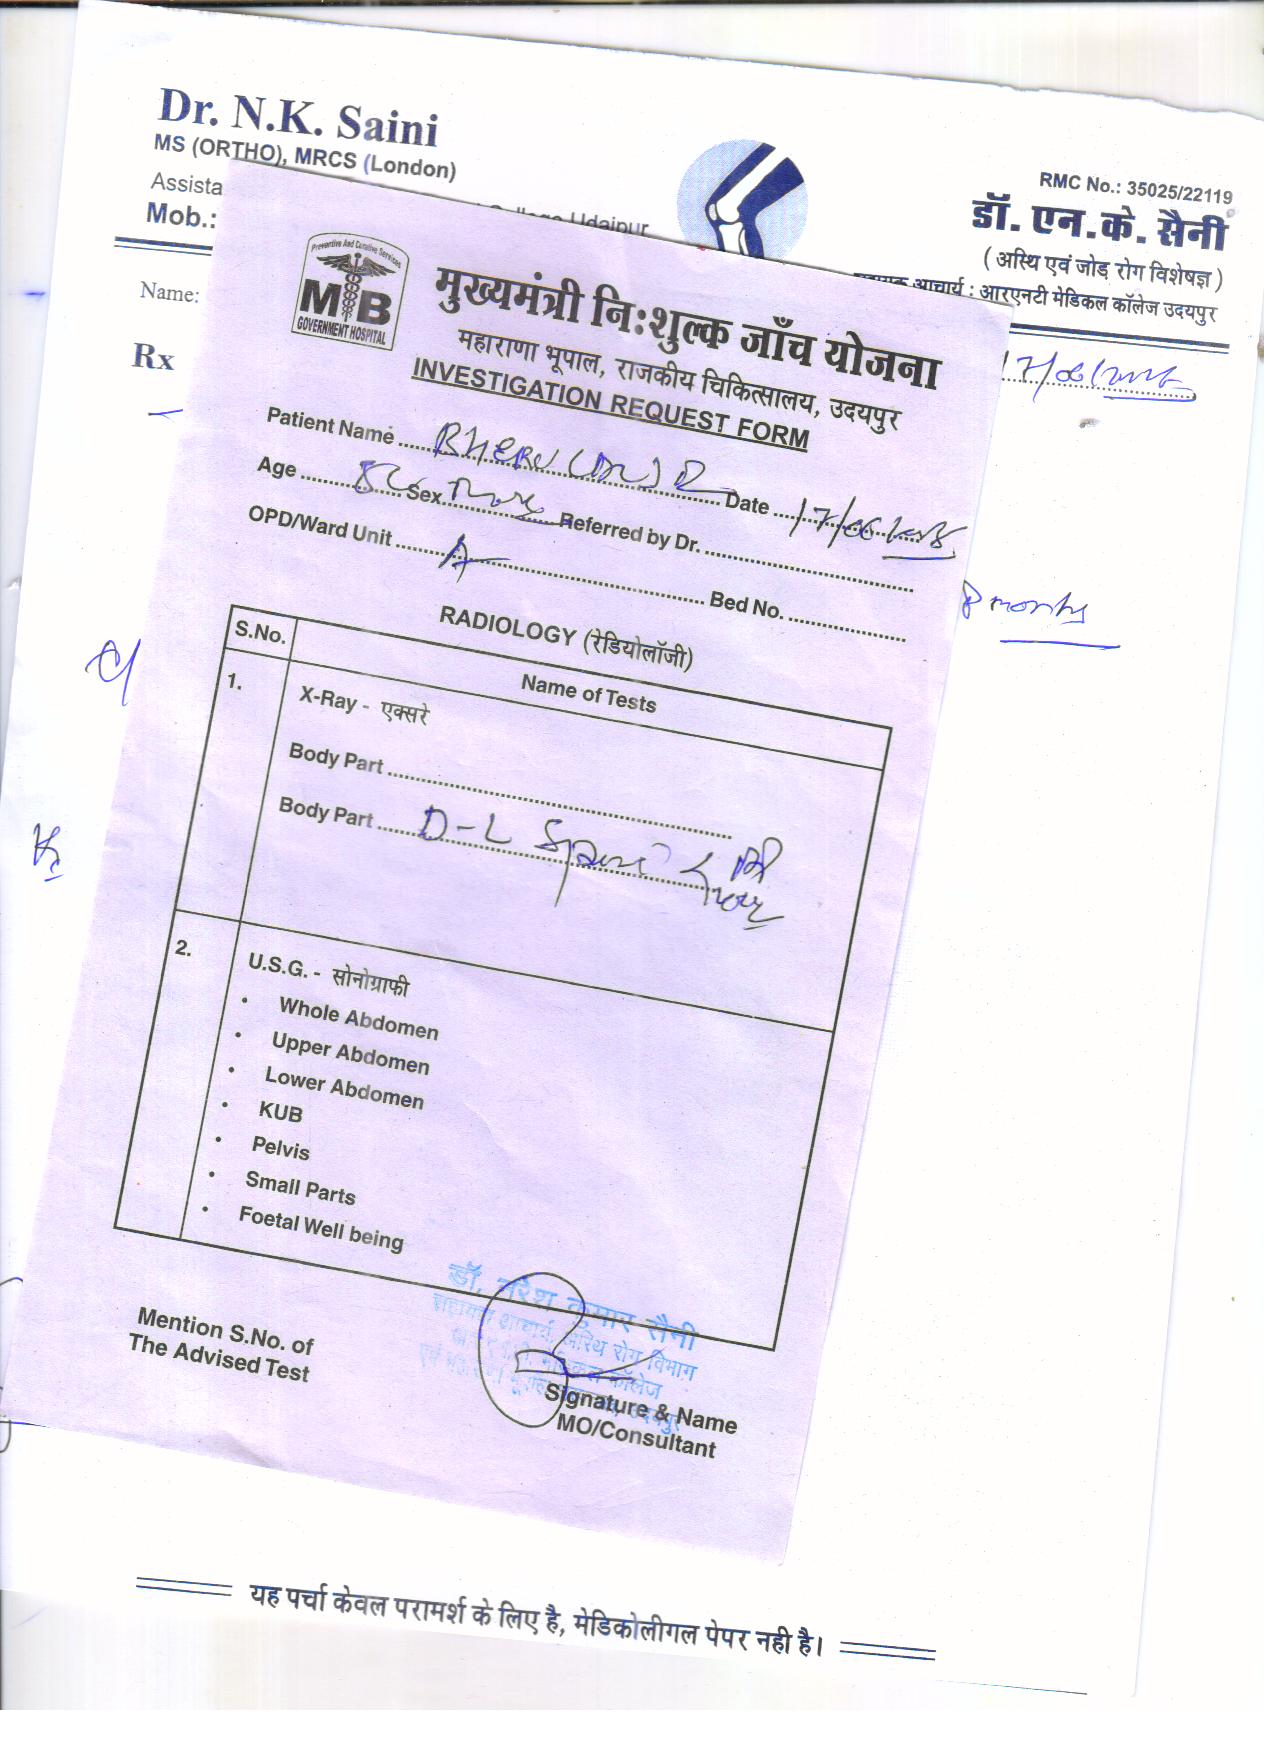 Dr. N.K. Saini
MS (ORTHO), MRCS (London)
Assista
Mob.:
College Udaipur
RMC No.: 35025/22119
डॉ. एन. के. सैनी
( अस्थि एवं जोड़ रोग विशेषज्ञ )
आचार्य : आरएनटी मेडिकल कॉलेज उदयपुर
Name:
17/06/
Rx
8 months
Preventive And Curative Services
MB
GOVERNMENT HOSPITAL
मुख्यमंत्री नि:शुल्क जाँच योजना
महाराणा भूपाल, राजकीय चिकित्सालय, उदयपुर
INVESTIGATION REQUEST FORM
Patient Name BHERU Date 17/06/
Age Sex Referred by Dr.
OPD/Ward Unit A Bed No.
RADIOLOGY (रेडियोलॉजी)
S.No. Name of Tests
1. X-Ray - एक्सरे
Body Part
Body Part D-L Spine
2. U.S.G. - सोनोग्राफी
• Whole Abdomen
• Upper Abdomen
• Lower Abdomen
• KUB
• Pelvis
• Small Parts
• Foetal Well being
डॉ. नरेश कुमार सैनी
सहायक आचार्य, अस्थि रोग विभाग
मेडिकल कॉलेज
उदयपुर
Mention S.No. of
The Advised Test
Signature & Name
MO/Consultant
यह पर्चा केवल परामर्श के लिए है, मेडिकोलीगल पेपर नही है।